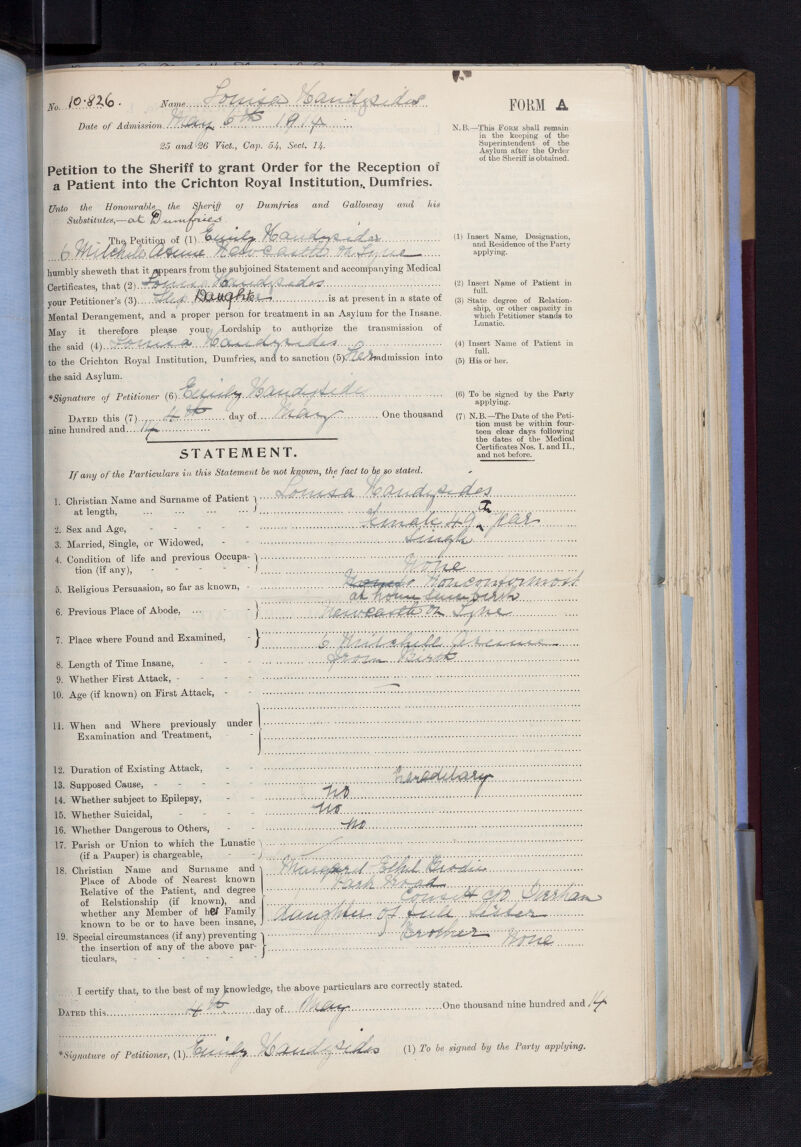 No. 10.826. Name Louisa Handysides FORM A
Date of Admission May 6th 1914
25 and 26 Vict., Cap. 54, Sect. 14.
N.B.—This FORM shall remain
in the keeping of the
Superintendent of the
Asylum after the Order
of the Sheriff is obtained.
Petition to the Sheriff to grant Order for the Reception of
a Patient into the Crichton Royal Institution, Dumfries.
Unto the Honourable the Sheriff of Dumfries and Galloway and his
Substitutes,—at Dumfries
The Petition of (1) Emily Handysides
6 Mitchell Avenue Newcastle on Tyne
(1) Insert Name, Designation,
and Residence of the Party
applying.
humbly sheweth that it appears from the subjoined Statement and accompanying Medical
Certificates, that (2) Louisa Handysides
(2) Insert Name of Patient in
full.
your Petitioner's (3) Daughter is at present in a state of
(3) State degree of Relation-
ship, or other capacity in
which Petitioner stands to
Lunatic.
Mental Derangement, and a proper person for treatment in an Asylum for the Insane.
May it therefore please your Lordship to authorize the transmission of
the said (4) Louisa Handysides
(4) Insert Name of Patient in
full.
to the Crichton Royal Institution, Dumfries, and to sanction (5) Her admission into
(5) His or her.
the said Asylum.
*Signature of Petitioner (6) Emily Handyside
(6) To be signed by the Party
applying.
DATED this (7) 4th day of May One thousand
nine hundred and 14
(7) N.B.—The Date of the Peti-
tion must be within four-
teen clear days following
the dates of the Medical
Certificates Nos. I. and II.,
and not before.
STATEMENT.
If any of the Particulars in this Statement be not known, the fact to be so stated.
1. Christian Name and Surname of Patient
at length, Louisa Handysides
2. Sex and Age, Female 49th year
3. Married, Single, or Widowed, Single
4. Condition of life and previous Occupa-
tion (if any), None
5. Religious Persuasion, so far as known, Nonconformost
at home since birth
6. Previous Place of Abode, Newcastle on Tyne
7. Place where Found and Examined, 6 Mitchell Avenue
8. Length of Time Insane, from Birth
9. Whether First Attack, —
10. Age (if known) on First Attack,
11. When and Where previously under
Examination and Treatment,
12. Duration of Existing Attack,
13. Supposed Cause, hereditary
14. Whether subject to Epilepsy, No
15. Whether Suicidal, No
16. Whether Dangerous to Others, No
17. Parish or Union to which the Lunatic
(if a Pauper) is chargeable,
18. Christian Name and Surname and
Place of Abode of Nearest known
Relative of the Patient, and degree
of Relationship (if known), and
whether any Member of her Family
known to be or to have been insane,
Margaret Ethel Brodie
Park Road
Consett c/o Durham
daughter of sister
Brother
19. Special circumstances (if any) preventing
the insertion of any of the above par-
ticulars, None
I certify that, to the best of my knowledge, the above particulars are correctly stated.
DATED this 4th day of May One thousand nine hundred and 14
*Signature of Petitioner, (1) Emily Handysides (1) To be signed by the Party applying.